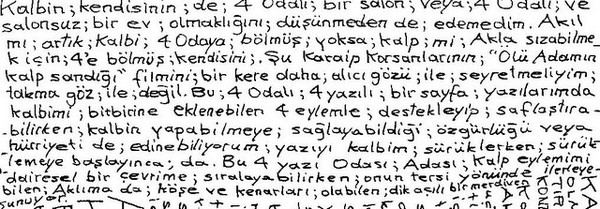 Kalbin; kendisinin; de; 4 Odalı; bir salon; veya; 4 Odalı; ve
salonsuz; bir ev; olmaklığını; düşünmeden de; edemedim. Akıl
mı; artık; Kalbi; 4 Odaya; bölmüş; yoksa; kalp; mi; Akla sızabilme_
k için; 4'e bölmüş; kendisini;. Şu Karaip Korsanlarının; "Ölü Adamın
kalp sandığı" filmini; bir kere daha; alıcı gözü; ile; seyretmeliyim;
takma göz; ile; değil. Bu; 4 Odalı; 4 yazılı; bir sayfa; yazılarımda
kalbimi; bitbirine eklenebilen 4 eylemle; destekleyip; saflaştıra-
-bilirken; kalbin yapabilmeye; sağlayabildiği; özgürlüğü veya
hürriyeti de; edinebiliyorum; yazıyı kalbim; sürüklerken; sürük
lemeye başlayınca; da. Bu 4 yazı Odası; Adası; kalp eylemimi
dairesel bir çevrime; sıralayabilirken; onun tersi yönünde ilerleye-
bilen; Aklıma da; köşe ve kenarları; olabilen; dik açılı bir merdiven
sunuyor.